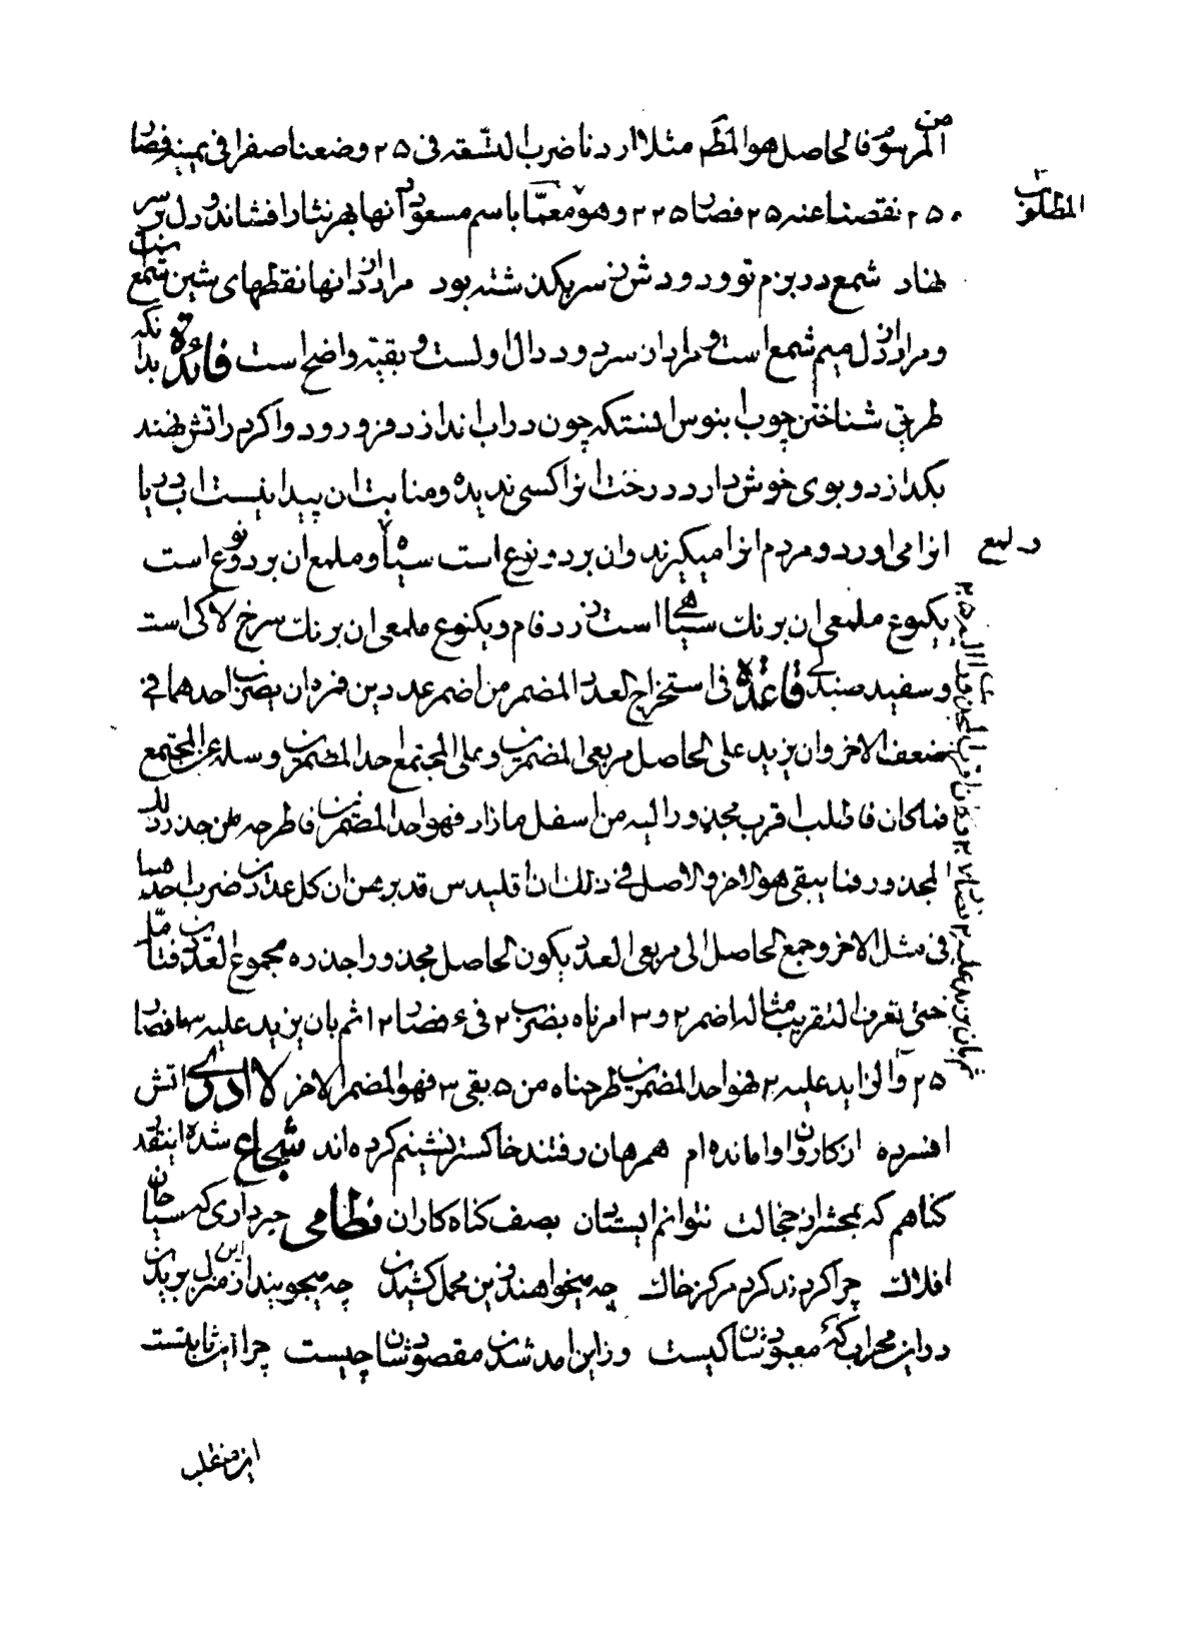 من المرسوم فالحاصل هو المطم مثلا اردنا ضرب التسعة فی ۲۵ وضعنا صفرا فی یمینه فصار
۲۵۰ نقصنا عنه ۲۵ فصار ۲۲۵ وهو معمّا باسم مسعود آنها بهر نثار افشاند و دل بر سر
نهاد شمع در بزم تو و رودش سر بکذشته بود مراد از انها نقطهای شین شمع
و مراد از دل میم شمع است و مراد از سر رود دال اولست و بقیّه واضح است فائده بدانکه
طریق شناختن چوب ابنوس انستکه چون در اب اندازد فرو رود و اکر در اتش نهند
بکدازد و بوی خوش دارد درخت انرا کسی ندیده و منابت ان پیدا نیست اب دریا
انرا می اورد و مردم انرا میکیرند وان بر دو نوع است سیاه و ملمع ان بر دو نوع است
یکنوع ملمعی ان برنك سیاهی است زرد فام و یکنوع ملمعی ان برنك سرخ لاکی است
و سفید صندلی قاعده فی استخراج العدد المضمر من اضمر عددین فمره ان یضرب احدهما فی
ضعف الاخر وان یزید علی الحاصل مربعی المضمرین و علی المجتمع احد المضمرین وسله عن المجتمع
فما کان فاطلب اقرب مجذور الیه من اسفل ما زاد فهو احد المضمرین فاطرحه من جذر ذلك
المجذور فما یبقی هو الاخر والاصل فی ذلك ان اقلیدس قد برهن ان کل عددین ضرب احدهما
فی مثل الاخر وجمع الحاصل الی مربعی العدد یکون الحاصل مجذورا جذره مجموع العددین فتامّل
حتی تعرف التقریب مثاله اضمر ۲ و ۳ امرناه بضرب ۲ فی ۶ فصار ۱۲ ثم بان یزید علیه فصار
۲۵ والزاید علیه ۲ فهو احد المضمرین طرحناه من ۵ بقی ۳ فهو المضمر الاخر لا ادری اتش
افسرده از کاروان وامانده ام همرهان رفتند خاکستر نشینم کرده اند شجاع شده اینقدر
کناهم که بمحشر از خجالت نتوانم ایستادن بصف کناه کاران نظامی خبر داری که سیاحان
افلاك چرا کردند کرد مرکز خاك چه میخواهند زین محمل کشیدن چه میجویند از این منزل بریدن
درین محراب که معبودشان کیست وزین امد شدن مقصودشان چیست چرا این ثابتست
این منقلب
المطلوب